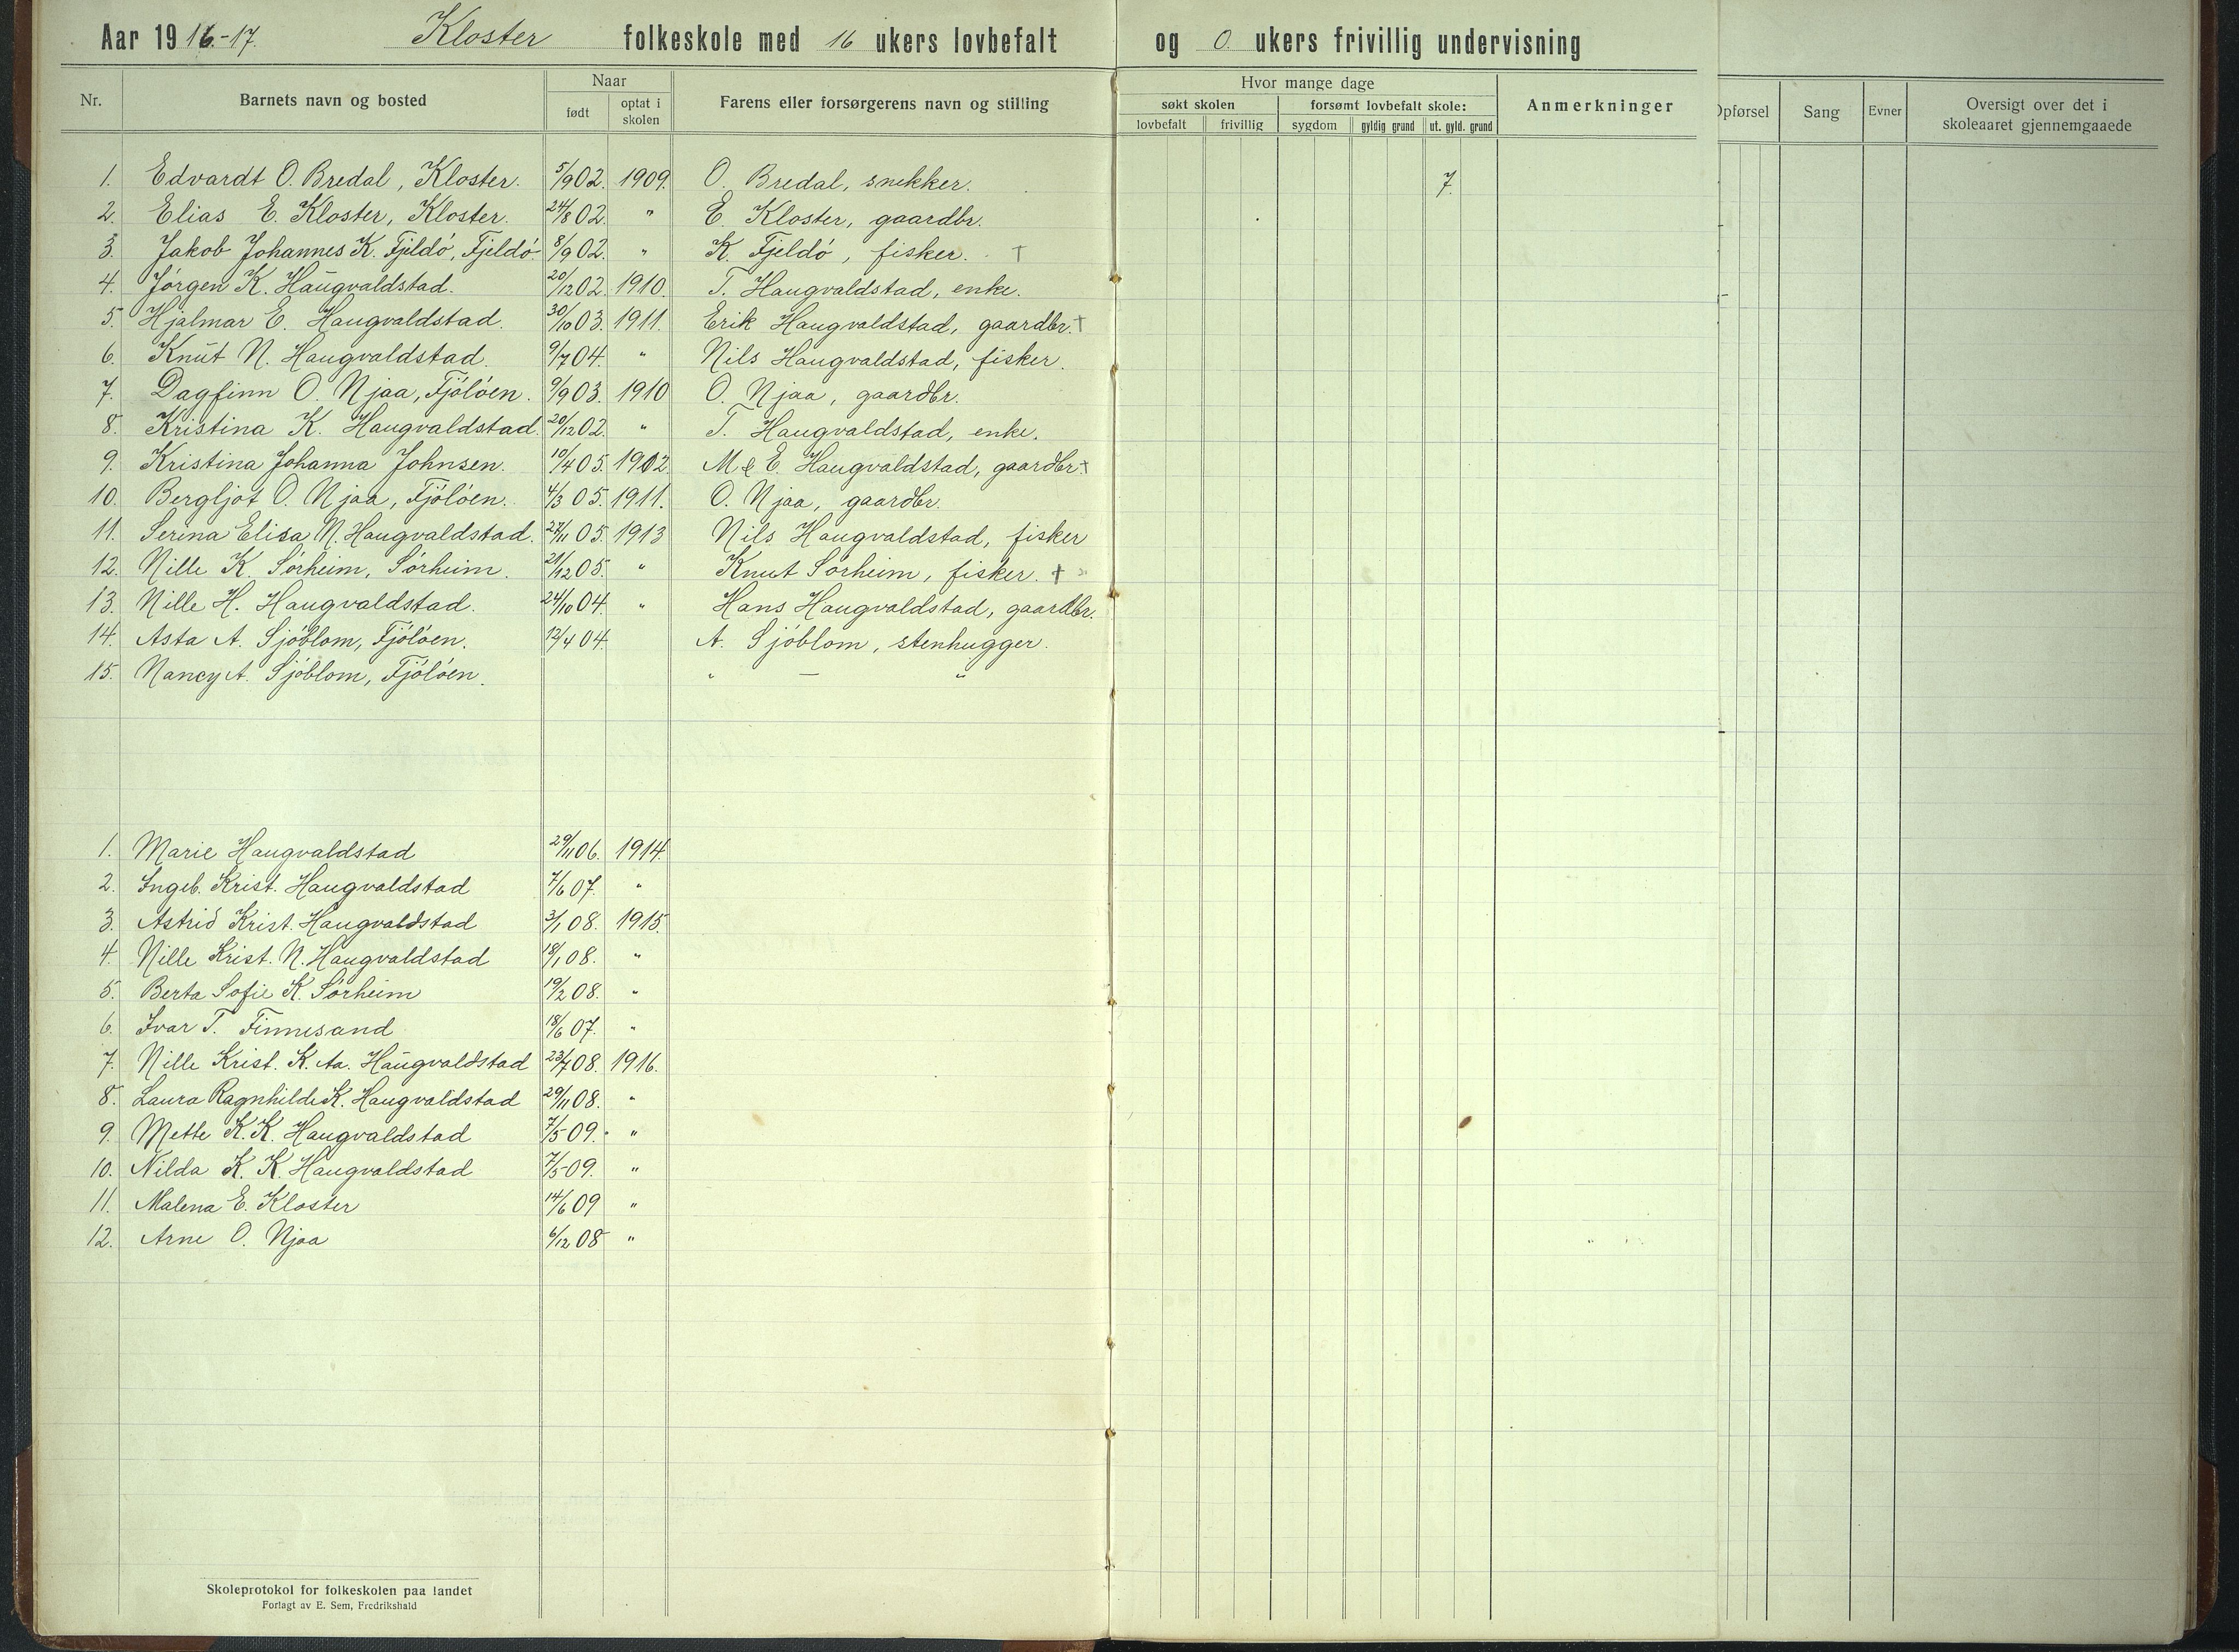 Aar 1916-17. Kloster folkeskole med 16 ukers lovbefalt og 0 ukers frivillig undervisning
Nr. Barnets navn og bosted Naar født optat i skolen Farens eller forsørgerens navn og stilling Hvor mange dage søkt skolen lovbefalt frivillig forsømt lovbefalt skole: sygdom gyldig grund ut. gyld. grund Anmerkninger Opførsel Sang Evner Oversigt over det i skoleaaret gjennemgaaede
1. Edvardt O. Bredal, Kloster. 5/9 02. 1909. O. Bredal, snekker. 7.
2. Elias E. Kloster, Kloster. 24/8 02. " E. Kloster, gaardbr.
3. Jakob Johannes K. Fjeldö, Fjeldö 8/9 02. " K. Fjeldö, fisker. †
4. Jörgen K. Haugvaldstad. 20/12 02. 1910. T. Haugvaldstad, enke.
5. Hjalmar E. Haugvaldstad. 30/10 03. 1911. Erik Haugvaldstad, gaardbr. †
6. Knut N. Haugvaldstad. 9/7 04. " Nils Haugvaldstad, fisker.
7. Dagfinn O. Njaa, Fjölöen. 9/9 03. 1910 O. Njaa, gaardbr.
8. Kristina K. Haugvaldstad. 20/12 02. " T. Haugvaldstad, enke.
9. Kristina Johanna Johnsen. 10/4 05. 1902 M & E. Haugvaldstad, gaardbr. †
10. Bergljot O. Njaa, Fjölöen. 4/3 05. 1911. O. Njaa, gaardbr.
11. Serina Elisa N. Haugvaldstad. 27/11 05. 1913 Nils Haugvaldstad, fisker
12. Nille K. Sörheim, Sörheim. 21/12 05. " Knut Sörheim, fisker. †
13. Nille H. Haugvaldstad. 24/10 04. " Hans Haugvaldstad, gaardbr.
14. Asta A. Sjöblom, Fjölöen. 12/4 04. A. Sjöblom, stenhugger.
15. Nancy A. Sjöblom, Fjölöen. " — "
1. Marie Haugvaldstad 29/11 06. 1914.
2. Ingeb. Krist. Haugvaldstad 7/6 07. "
3. Astrid Krist. Haugvaldstad 3/1 08. 1915.
4. Nille Krist. N. Haugvaldstad 18/1 08. "
5. Berta Sofie K. Sörheim 19/2 08. "
6. Ivar T. Finnesand 18/6 07. "
7. Nille Krist. K. Aa. Haugvaldstad 23/7 08. 1916.
8. Laura Ragnhilde K. Haugvaldstad 29/11 08. "
9. Mette K. K. Haugvaldstad 7/5 09. "
10. Nilda K. K. Haugvaldstad 7/5 09. "
11. Malena E. Kloster 14/6 09 "
12. Arne O. Njaa 6/12 08 "
Skoleprotokol for folkeskolen paa landet
Forlagt av E. Sem, Fredrikshald